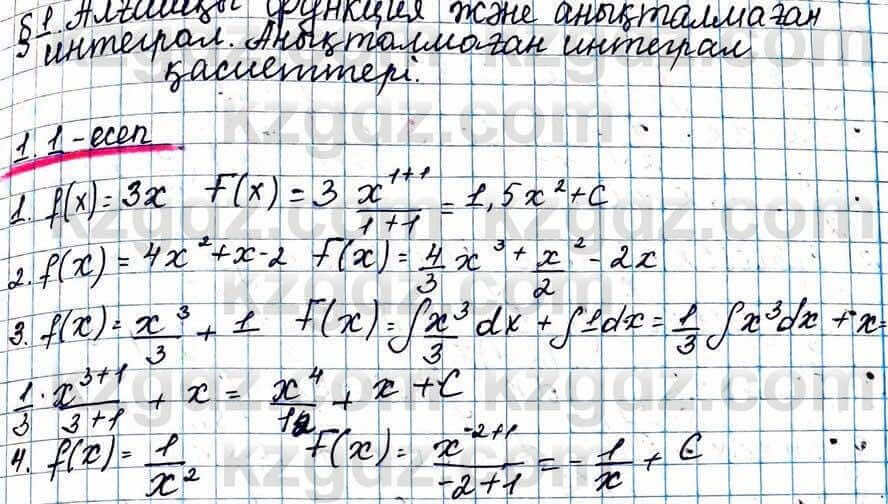 §1. Алғашқы функция және анықталмаған
интеграл. Анықталмаған интеграл
қасиеттері.
1.1-есеп
1. f(x) = 3x F(x) = 3 x^{1+1}/(1+1) = 1,5x² + C
2. f(x) = 4x² + x - 2 F(x) = 4/3 x³ + x²/2 - 2x
3. f(x) = x³/3 + 1 F(x) = ∫x³/3 dx + ∫1dx = 1/3 ∫x³dx + x =
1/3 · x^{3+1}/(3+1) + x = x⁴/12 + x + C
4. f(x) = 1/x² F(x) = x^{-2+1}/(-2+1) = -1/x + C